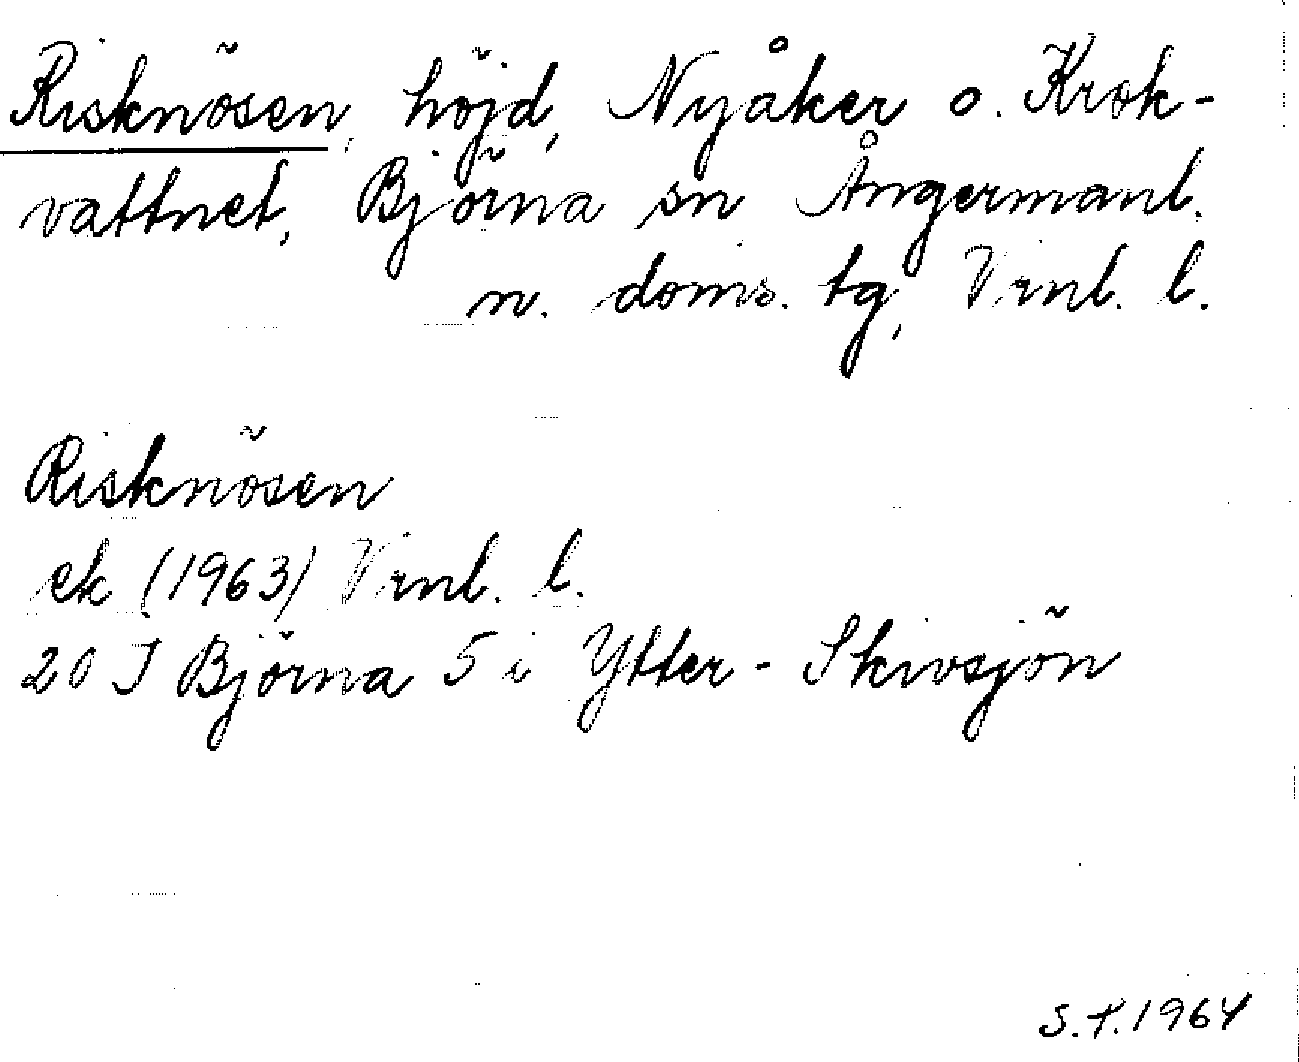 Risknösen, höjd, Nyåker o. Krok-
vattnet, Björna sn Ångermanl.
n. doms. tg, Vrnl. l.
Risknösen
ek (1963) Vrnl. l.
20 J Björna 5 i Ytter-Skivsjön
S.T.1964